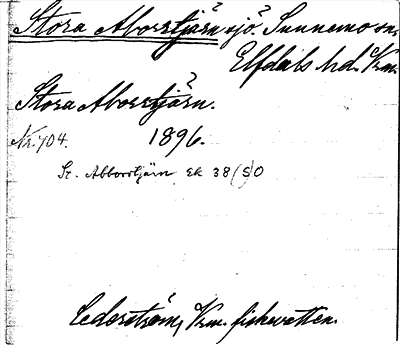 Stora Aborrtjärn sjö. Sunnemo sn,
Elfdals hd. Vrm.
Stora Aborrtjärn.
Nr. 704. 1896.
St. Abborrtjärn ek 38 (S)O
Cederström, Vrm. fiskevatten.